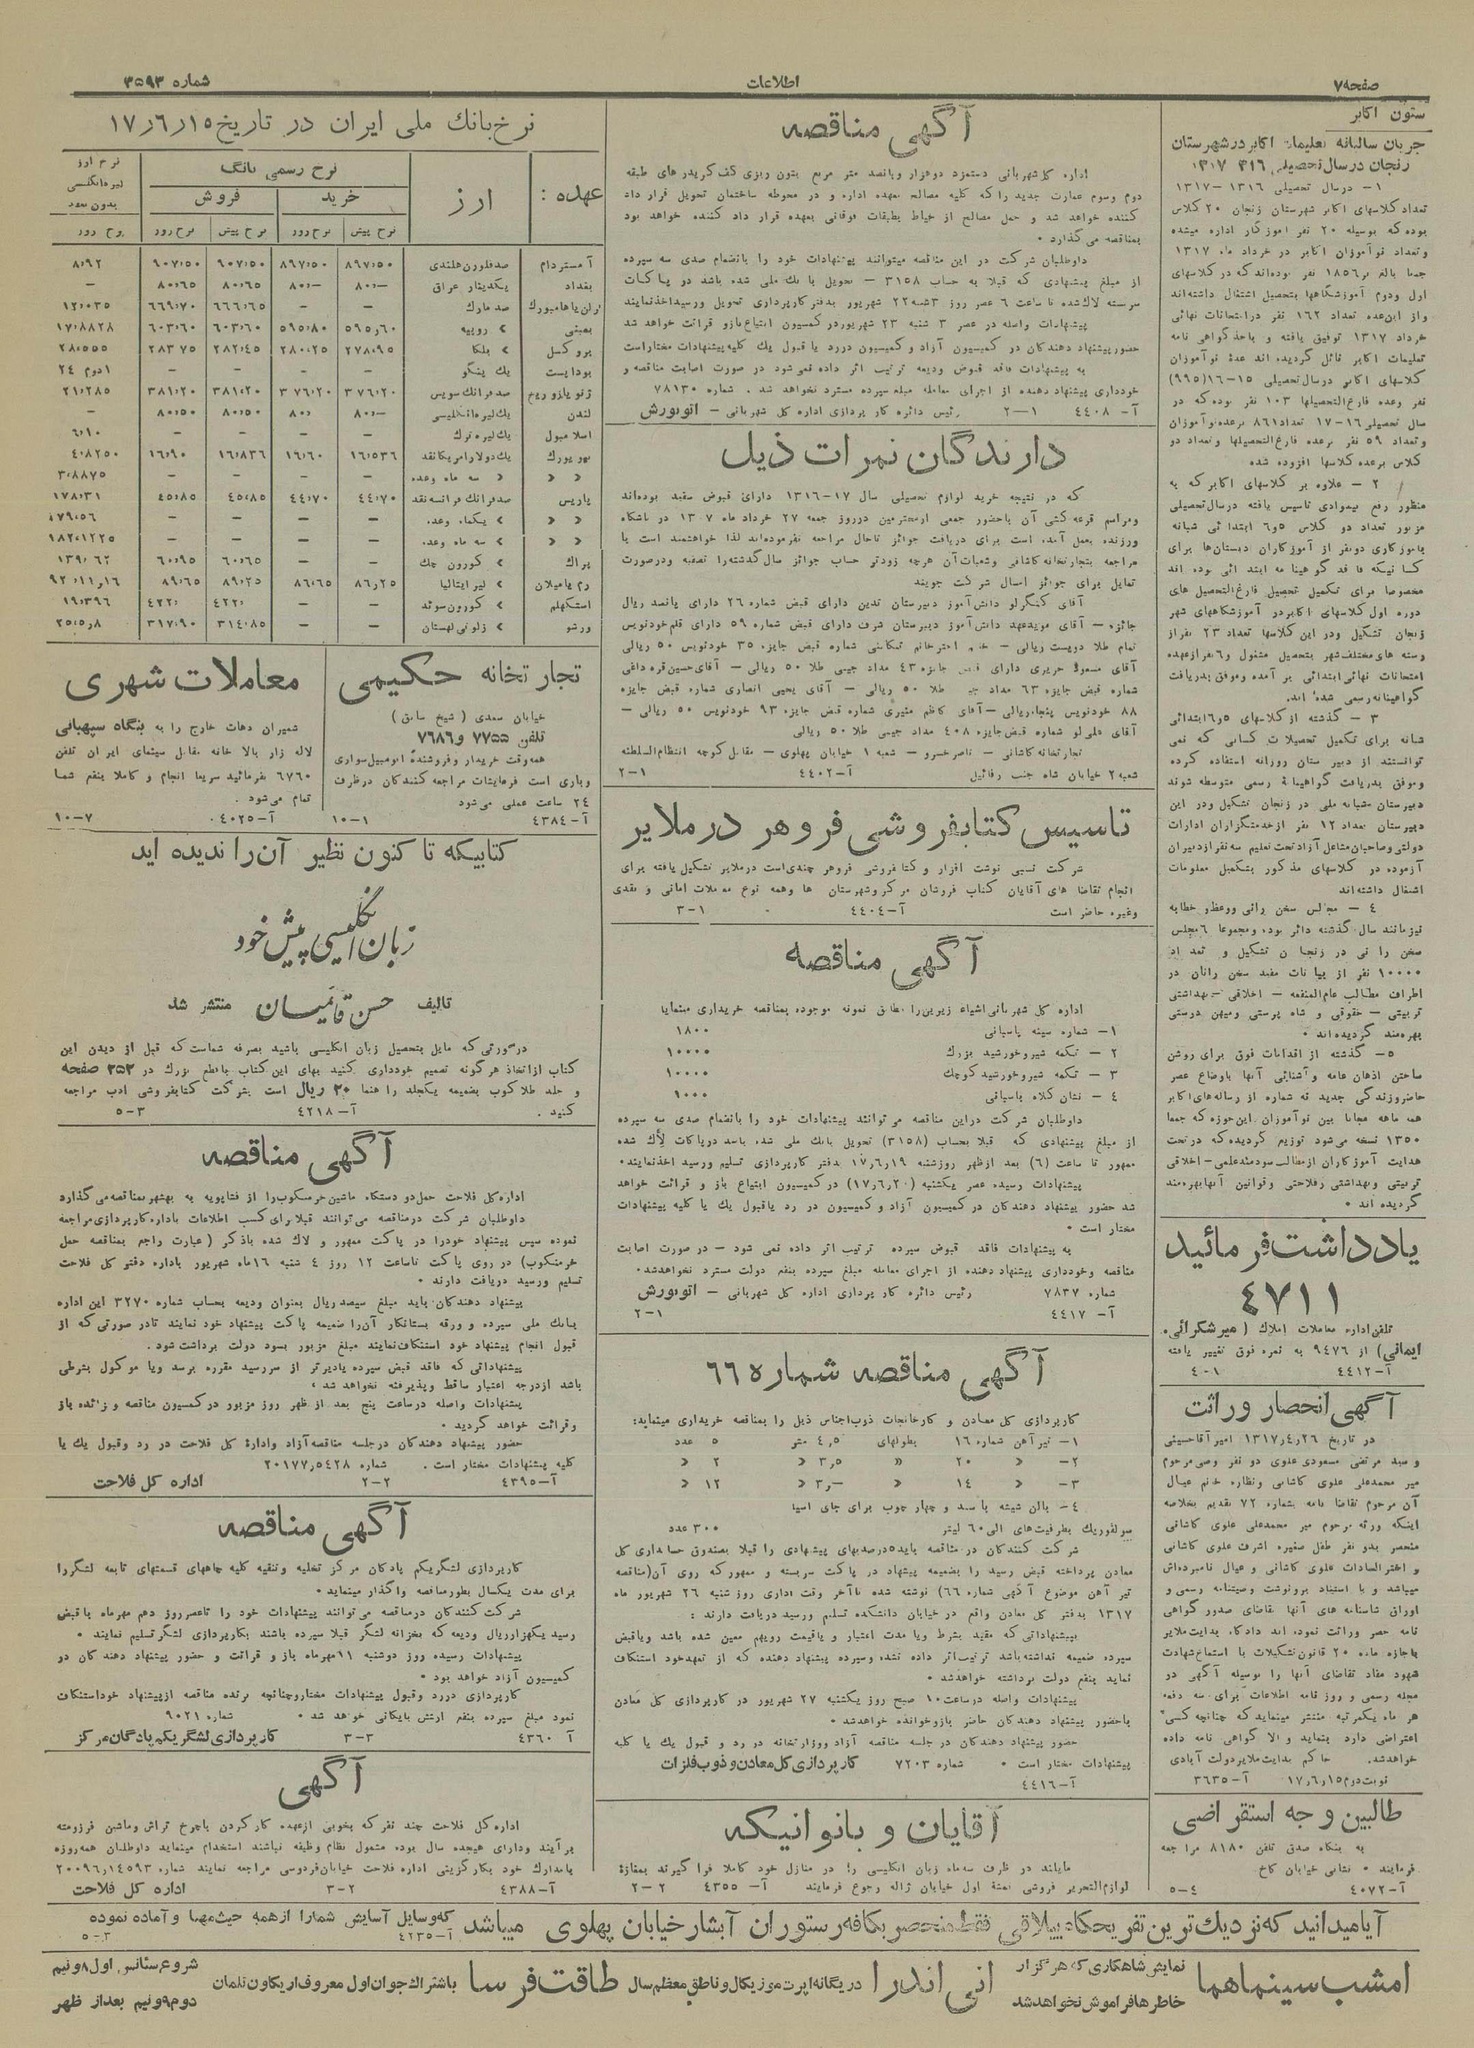 صفحه ۷
اطلاعات
شماره ۳۵۹۳
ستون اکابر
جریان سالیانه تعلیمات اکابر در شهرستان
زنجان در سال تحصیلی ۳۱۶ر۳۱۷
۱- در سال تحصیلی ۱۳۱۶-۱۳۱۷
تعداد کلاسهای اکابر شهرستان زنجان ۲۰ کلاس
بوده که بوسیله ۲۰ نفر آموزگار اداره میشده
و تعداد نوآموزان اکابر در خرداد ماه ۱۳۱۷
جمعا بالغ بر ۱۸۵۶ نفر بوده اند که در کلاسهای
اول و دوم آموزشگاهها بتحصیل اشتغال داشته اند
و از این عده تعداد ۱۶۲ نفر در امتحانات نهائی
خرداد ۱۳۱۷ توفیق یافته و باخذ گواهی نامه
تعلیمات اکابر نائل گردیده اند عدهٔ نوآموزان
کلاسهای اکابر در سال تحصیلی ۱۵-۱۶ (۹۹۵)
نفر و عده فارغ التحصیلها ۱۰۳ نفر بوده که در
سال تحصیلی ۱۶-۱۷ تعداد ۸۶۱ بر عده نوآموزان
و تعداد ۵۹ نفر بر عده فارغ التحصیلها و تعداد دو
کلاس بر عده کلاسها افزوده شده
۲- علاوه بر کلاسهای اکابر که به
منظور رفع بیسوادی تاسیس یافته در سال تحصیلی
مزبور تعداد دو کلاس ۵ و ۶ ابتدائی شبانه
بآموزگاری دو نفر از آموزگاران دبستان ها برای
کسانیکه فاقد گواهینامه ابتدائی بوده اند
مخصوصا برای تکمیل تحصیل فارغ التحصیل های
دوره اول کلاسهای اکابر در آموزشگاههای شهر
زنجان تشکیل و در این کلاسها تعداد ۲۳ نفر از
دسته های مختلف شهر بتحصیل مشغول و ۶ نفر از عهده
امتحانات نهائی ابتدائی بر آمده و موفق بدریافت
گواهینامه رسمی شده اند.
۳- گذشته از کلاسهای ۵ و ۶ ابتدائی
شبانه برای تکمیل تحصیلات کسانی که نمی
توانستند از دبیرستان روزانه استفاده کرده
و موفق بدریافت گواهینامهٔ رسمی متوسطه شوند
دبیرستان شبانه ملی در زنجان تشکیل و در این
دبیرستان تعداد ۱۲ نفر از خدمتگزاران ادارات
دولتی و صاحبان مشاغل آزاد تحت تعلیم سه نفر از دبیران
آزموده در کلاسهای مذکور بتکمیل معلومات
اشتغال داشته اند
۴- مجالس سخن رانی و وعظ و خطابه
نیز مانند سال گذشته دائر بوده و مجموعا ۶ مجلس
سخن رانی در زنجان تشکیل و تعداد
۱۰۰۰۰ نفر از بیانات مفید سخن رانان در
اطراف مطالب عام المنفعه - اخلاقی - بهداشتی
تربیتی - حقوقی و شاه پرستی و میهن دوستی
بهره مند گردیده اند.
۵- گذشته از اقدامات فوق برای روشن
ساختن اذهان عامه و آشنائی آنها باوضاع عصر
حاضر و زندگی جدید نه شماره از رساله های اکابر
همه ماهه مجانا بین نوآموزان این حوزه که جمعا
۱۳۵۰ نسخه می شود توزیع گردیده که در تحت
هدایت آموزگاران از مطالب سودمند علمی - اخلاقی
تربیتی و بهداشتی و فلاحتی و قوانین آنها بهره مند
گردیده اند.
یادداشت فرمائید
۴۷۱۱
تلفن اداره معاملات املاک (میرشکرائی.
ایمانی) از ۹۴۷۶ به نمره فوق تغییر یافته
آ-۴۴۱۲ ۱-۴
آگهی انحصار وراثت
در تاریخ ۱۳۱۷ر۴ر۲۶ امیر آقا حسینی
و سید مرتضی مسعودی علوی دو نفر وصی مرحوم
میر محمدعلی علوی کاشانی و نظاره خانم عیال
آن مرحوم تقاضا نامه بشماره ۷۲ تقدیم بخلاصه
اینکه ورثه مرحوم میر محمدعلی علوی کاشانی
منحصر بدو نفر طفل صغیره اشرف علوی کاشانی
و اخترالسادات علوی کاشانی و عیال نامبرده اش
میباشد و با استناد برونوشت وصیتنامه رسمی و
اوراق شناسنامه های آنها تقاضای صدور گواهی
نامه حصر وراثت نموده اند دادگاه بدایت ملایر
باجازه ماده ۲۰ قانون تشکیلات با استماع شهادت
شهود مفاد تقاضای آنها را بوسیله آگهی در
مجله رسمی و روزنامه اطلاعات برای سه دفعه
هر ماه یکمرتبه منتشر مینماید که چنانچه کسی
اعتراضی دارد بنماید والا گواهی نامه داده
خواهد شد. حاکم بدایت ملایر دولت آبادی
نوبت دوم ۱۷ر۶ر۱۵ آ-۳۶۳۵
طالبین وجه استقراضی
به بنگاه صدق تلفن ۸۱۸۰ مراجعه
فرمایند. نشانی خیابان کاخ
آ-۴۰۷۲ ۴-۵
آگهی مناقصه
اداره کل شهربانی دستمزد دوهزار و پانصد متر مربع بتون ریزی کف کریدرهای طبقه
دوم و سوم عمارت جدید را که کلیه مصالح بعهده اداره و در محوطه ساختمان تحویل قرار داد
کننده خواهد شد و حمل مصالح از حیاط بطبقات فوقانی بعهده قرار داد کننده خواهد بود
بمناقصه می گذارد.
داوطلبان شرکت در این مناقصه میتوانند پیشنهادات خود را بانضمام صدی سه سپرده
از مبلغ پیشنهادی که قبلا به حساب ۳۱۵۸ - تحویل بانک ملی شده باشد در پاکات
سربسته لاک شده تا ساعت ۶ عصر روز ۳شنبه ۲۲ شهریور بدفتر کارپردازی تحویل و رسید اخذ نمایند
پیشنهادات واصله در عصر ۳ شنبه ۲۳ شهریور در کمیسون ابتیاع باز و قرائت خواهد شد
حضور پیشنهاد دهندگان در کمیسیون آزاد و کمیسیون در رد یا قبول یک کلیه پیشنهادات مختار است
به پیشنهادات فاقد قبوض ودیعه ترتیب اثر داده نمی شود در صورت اصابت مناقصه و
خودداری پیشنهاد دهنده از اجرای معامله مبلغ سپرده مسترد نخواهد شد. شماره ۷۸۱۳۰
آ- ۴۴۰۸ ۱-۲ رئیس دائره کارپردازی اداره کل شهربانی - اتور پورش
دارندگان نمرات ذیل
که در نتیجه خرید لوازم تحصیلی سال ۱۷-۱۳۱۶ دارای قبوض سفید بوده اند
و مراسم قرعه کشی آن با حضور جمعی از محترمین در روز جمعه ۲۷ خرداد ماه ۱۳۰۷ در باشگاه
ورزنده بعمل آمده است برای دریافت جوائز تاحال مراجعه نفرموده اند لذا خواهشمند است با
مراجعه بتجارتخانه کاشانی و شعبات آن هرچه زودتر حساب جوائز سال گذشته را تصفیه و در صورت
تمایل برای جوائز امسال شرکت جویند
آقای کنگرلو دانش آموز دبیرستان تدین دارای قبض شماره ۲۶ دارای پانصد ریال
جائزه - آقای مویدعهد دانش آموز دبیرستان شرف دارای قبض شماره ۵۹ دارای قلم خودنویس
تمام طلا دویست ریالی - خانم اخترخانم شماره قبض جایزه ۳۵ خودنویس ۵۰ ریالی
آقای مسعود حریری دارای قبض جایزه ۴۳ مداد جیبی طلا ۵۰ ریالی - آقای حسین قره داغی
شماره قبض جایزه ۶۳ مداد جیبی طلا ۵۰ ریالی - آقای یحیی انصاری شماره قبض جایزه
۸۸ خودنویس پنجاه ریالی - آقای کاظم شماره قبض جایزه ۹۳ خودنویس ۵۰ ریالی -
آقای علی لو شماره قبض جایزه ۴۰۸ مداد جیبی طلا ۵۰ ریالی
تجارتخانه کاشانی - ناصرخسرو - شعبه ۱ خیابان پهلوی - مقابل کوچه انتظام السلطنه
شعبه ۲ خیابان شاه جنب رفائیل آ-۴۴۰۲ ۱-۲
تاسیس کتابفروشی فروهر در ملایر
شرکت نسبی نوشت افزار و کتابفروشی فروهر چندی است در ملایر تشکیل یافته برای
انجام تقاضاهای آقایان کتاب فروشان مرکز و شهرستان ها و همه نوع معاملات امانی و نقدی
و غیره حاضر است آ-۴۴۰۴ ۱-۳
آگهی مناقصه
اداره کل شهربانی اشیاء زیرین را مطابق نمونه موجوده بمناقصه خریداری مینماید
۱- شماره سینه پاسبانی ۱۸۰۰
۲- تکمه شیروخورشید بزرگ ۱۰۰۰۰
۳- تکمه شیروخورشید کوچک ۱۰۰۰۰
۴- نشان کلاه پاسبانی ۱۰۰۰
داوطلبان شرکت در این مناقصه می توانند پیشنهادات خود را بانضمام صدی سه سپرده
از مبلغ پیشنهادی که قبلا بحساب (۳۱۵۸) تحویل بانک ملی شده باشد در پاکات لاک شده
ممهور تا ساعت (۶) بعد از ظهر روز شنبه ۱۷ر۶ر۱۹ بدفتر کارپردازی تسلیم و رسید اخذ نمایند.
پیشنهادات رسیده عصر یکشنبه (۱۷ر۶ر۲۰) در کمیسیون ابتیاع باز و قرائت خواهد
شد حضور پیشنهاد دهندگان در کمیسیون آزاد و کمیسیون در رد یا قبول یک یا کلیه پیشنهادات
مختار است.
به پیشنهادات فاقد قبوض سپرده ترتیب اثر داده نمی شود - در صورت اصابت
مناقصه و خودداری پیشنهاد دهنده از اجرای معامله مبلغ سپرده بنفع دولت مسترد نخواهد شد.
شماره ۷۸۳۷ رئیس دائره کارپردازی اداره کل شهربانی - اتور پورش
آ- ۴۴۱۷ ۱-۲
آگهی مناقصه شماره ۶۶
کارپردازی کل معادن و کارخانجات ذوب اجناس ذیل را بمناقصه خریداری مینماید:
۱- تیرآهن شماره ۱۶ بطولهای ۴٫۵ متر ۵ عدد
۲- « ۲۰ « ۳٫۵ « ۲ «
۳- « ۱۴ « ۳٫- « ۱۲ «
۴- بالن شیشه با سبد و چهارچوب برای جای اسید
سولفوریک بظرفیت های الی ۶۰ لیتر ۳۰۰ عدد
شرکت کنندگان در مناقصه باید ۵ درصد بهای پیشنهادی را قبلا بصندوق حسابداری کل
معادن پرداخته قبض رسید را بضمیمه پیشنهاد در پاکت سربسته و ممهور که روی آن (مناقصه
تیر آهن موضوع آگهی شماره ۶۶) نوشته شده تا آخر وقت اداری روز شنبه ۲۶ شهریور ماه
۱۳۱۷ بدفتر کل معادن واقع در خیابان دانشکده تسلیم و رسید دریافت دارند:
بپیشنهاداتی که مقید بشرط و یا مدت اعتبار و یا قیمت رویهم معین شده باشد و یا قبض
سپرده ضمیمه نداشته باشد ترتیب اثر داده نشده و سپرده پیشنهاد دهنده که از تعهد خود استنکاف
نماید بنفع دولت برداشته خواهد شد.
پیشنهادات واصله در ساعت ۱۰ صبح روز یکشنبه ۲۷ شهریور در کارپردازی کل معادن
با حضور پیشنهاد دهندگان حاضر باز و خوانده خواهد شد.
حضور پیشنهاد دهندگان در جلسه مناقصه آزاد و وزارتخانه در رد و قبول یک یا کلیه
پیشنهادات مختار است. شماره ۷۲۰۳ کارپردازی کل معادن و ذوب فلزات
آ-۴۴۱۶
آقایان و بانوانیکه
مایلند در ظرف سه ماه زبان انگلیسی را در منازل خود کاملا فرا گیرند بمغازه
لوازم التحریر فروشی اول خیابان ژاله رجوع فرمایند آ- ۴۳۵۵ ۲-۲
نرخ بانک ملی ایران در تاریخ ۱۷ر۶ر۱۵
عهده: ارز نرخ رسمی بانک نرخ ارز
خرید فروش لیره انگلیسی
بدون تعهد
نرخ پیش نرخ روز نرخ پیش نرخ روز نرخ روز
آمستردام صد فلورن هلندی ۸۹۷٫۵۰ ۸۹۷٫۵۰ ۹۰۷٫۵۰ ۹۰۷٫۵۰ ۸٫۹۲
بغداد یکدینار عراق ۸۰٫- ۸۰٫- ۸۰٫۶۵ ۸۰٫۶۵ -
برلن یا هامبورک صد مارک - - ۶۶۶٫۶۵ ۶۶۹٫۷۰ ۱۲٫۰۳۵
بمبئی » روپیه ۵۹۵٫۶۰ ۵۹۵٫۸۰ ۶۰۳٫۶۰ ۶۰۳٫۶۰ ۱۷٫۸۸۲۸
بروکسل » بلگا ۲۷۸٫۹۵ ۲۸۰٫۲۵ ۲۸۲٫۴۵ ۲۸۳٫۷۵ ۲۸٫۵۵۵
بوداپست یک پنگو - - - - ۲۴ دوم
ژنو یا زوریخ صد فرانک سویس ۳۷۶٫۲۰ ۳۷۶٫۲۰ ۳۸۱٫۲۰ ۳۸۱٫۲۰ ۲۱٫۲۸۵
لندن یک لیره انگلیسی ۸۰٫- ۸۰٫ ۸۰٫۵۰ ۸۰٫۵۰ -
اسلامبول یک لیره ترک - - - - ۶٫۱۰
نیویورک یک دولار امریکا نقد ۱۶٫۵۳۶ ۱۶٫۶۰ ۱۶٫۸۳۶ ۱۶٫۹۰ ۴٫۸۲۵۰
« « « سه ماه وعده - - - - ۳٫۸۸۷۵
پاریس صد فرانک فرانسه نقد ۴۴٫۷۰ ۴۴٫۷۰ ۴۵٫۸۵ ۴۵٫۸۵ ۱۷۸٫۳۱
« « » یکماه وعده - - - - ۷۹٫۵۶
« « » سه ماه وعده - - - - ۱۸۲٫۱۲۲۵
پراک » کورون چک - - ۶۰٫۶۵ ۶۰٫۹۵ ۱۳۹٫۶۲
رم یا میلان » لیر ایتالیا ۸۶٫۲۵ ۸۶٫۶۵ ۸۹٫۲۵ ۸۹٫۶۵
استکهلم » کورون سوئد - - ۴۲۲٫ ۴۲۲٫ ۱۹٫۳۹۶
ورشو » زلوتی لهستان - - ۳۱۴٫۸۵ ۳۱۷٫۹۰
تجارتخانه حکیمی
خیابان سعدی (شیخ سابق)
تلفن ۷۷۵۵ و ۷۶۸۶
همه وقت خریدار و فروشندهٔ اتومبیل سواری
و باری است فرمایشات مراجعه کنندگان در ظرف
۲۴ ساعت عملی می شود
آ-۴۳۸۴ ۱-۱۰
معاملات شهری
شمیران دهات خارج را به بنگاه سپهبانی
لاله زار بالا خانه مقابل سینمای ایران تلفن
۶۷۶۰ بفرمائید سریعا انجام و کاملا بنفع شما
تمام می شود.
آ-۴۰۲۵ ۷-۱۰
کتابیکه تا کنون نظیر آن را ندیده اید
زبان انگلیسی پیش خود
تالیف حسن قائمیان منتشر شد
در صورتی که مایل بتحصیل زبان انگلیسی باشید بصرفه شماست که قبل از دیدن این
کتاب از اتخاذ هرگونه تصمیم خودداری کنید بهای این کتاب با قطع بزرک در ۲۵۲ صفحه
و جلد طلاکوب بضمیمه یکجلد راهنما ۲۰ ریال است بشرکت کتابفروشی ادب مراجعه
کنید. آ-۴۲۱۸ ۳-۵
آگهی مناقصه
اداره کل فلاحت حمل دو دستگاه ماشین خرمنکوب را از فشاپویه به بهشهر بمناقصه می گذارد
داوطلبان شرکت در مناقصه می توانند قبلا برای کسب اطلاعات باداره کارپردازی مراجعه
نموده سپس پیشنهاد خود را در پاکت ممهور و لاک شده با ذکر (عبارت راجع بمناقصه حمل
خرمنکوب) در روی پاکت تا ساعت ۱۲ روز ۴ شنبه ۱۶ ماه شهریور باداره دفتر کل فلاحت
تسلیم و رسید دریافت دارند.
پیشنهاد دهندکان باید مبلغ سیصد ریال بعنوان ودیعه بحساب شماره ۳۲۷۰ این اداره
ببانک ملی سپرده و ورقه بستانکار آن را ضمیمه پاکت پیشنهاد خود نمایند تا در صورتی که از
قبول انجام پیشنهاد خود استنکاف نمایند مبلغ مزبور بسود دولت برداشت شود.
پیشنهاداتی که فاقد قبض سپرده یا دیرتر از سررسید مقرره برسد و یا موکول بشرطی
باشد از درجه اعتبار ساقط و پذیرفته نخواهد شد.
پیشنهادات واصله در ساعت پنج بعد از ظهر روز مزبور در کمسیون مناقصه و زائده باز
و قرائت خواهد گردید.
حضور پیشنهاد دهندگان در جلسه مناقصه آزاد و ادارهٔ کل فلاحت در رد و قبول یک یا
کلیه پیشنهادات مختار است. شماره ۲۰۱۷۷ر۵۴۲۸
آ-۴۳۹۵ ۲-۲ اداره کل فلاحت
آگهی مناقصه
کارپردازی لشگر یکم پادکان مرکز تخلیه و تنقیه کلیه چاههای قسمتهای تابعه لشگر را
برای مدت یکسال بطور مناقصه واگذار مینماید.
شرکت کنندگان در مناقصه می توانند پیشنهادات خود را تا عصر روز دهم مهرماه با قبض
رسید یکهزار ریال ودیعه که بخزانه لشگر قبلا سپرده باشند بکارپردازی لشگر تسلیم نمایند.
پیشنهادات رسیده روز دوشنبه ۱۱ مهرماه باز و قرائت و حضور پیشنهاد دهندکان در
کمیسیون آزاد خواهد بود.
کارپردازی در رد و قبول پیشنهادات مختار و چنانچه برنده مناقصه از پیشنهاد خود استنکاف
نمود مبلغ سپرده بنفع ارتش بایگانی خواهد شد. شماره ۹۰۲۱
آ ۴۳۶۰ ۳-۳ کارپردازی لشگر یکم پادگان مرکز
آگهی
اداره کل فلاحت چند نفر که بخوبی از عهده کار کردن با چرخ تراش و ماشین فرز ورمته
برآیند و دارای هیجده سال بوده مشمول نظام وظیفه نباشند استخدام مینماید داوطلبان همه روزه
با مدارک خود بکارگزینی اداره فلاحت خیابان فردوسی مراجعه نمایند شماره ۲۰۰۹۶ر۱۴۵۹۳
آ-۴۳۸۸ ۲-۳ اداره کل فلاحت
آیا میدانید که نزدیک ترین تفریحگاه ییلاقی فقط منحصر بکافه رستوران آبشار خیابان پهلوی میباشد که وسایل آسایش شما را از همه حیث مهیا و آماده نموده
آ-۴۲۳۵ ۳-۵
امشب سینما هما نمایش شاهکاری که هرگز از
خاطرها فراموش نخواهد شد
انی اندرا در یگانه اپرت موزیکال و ناطق معظم سال طاقت فرسا باشتراک جوان اول معروف اریکا ون تلمان
شروع سانس اول ۸ و نیم
دوم ۹ و نیم بعد از ظهر